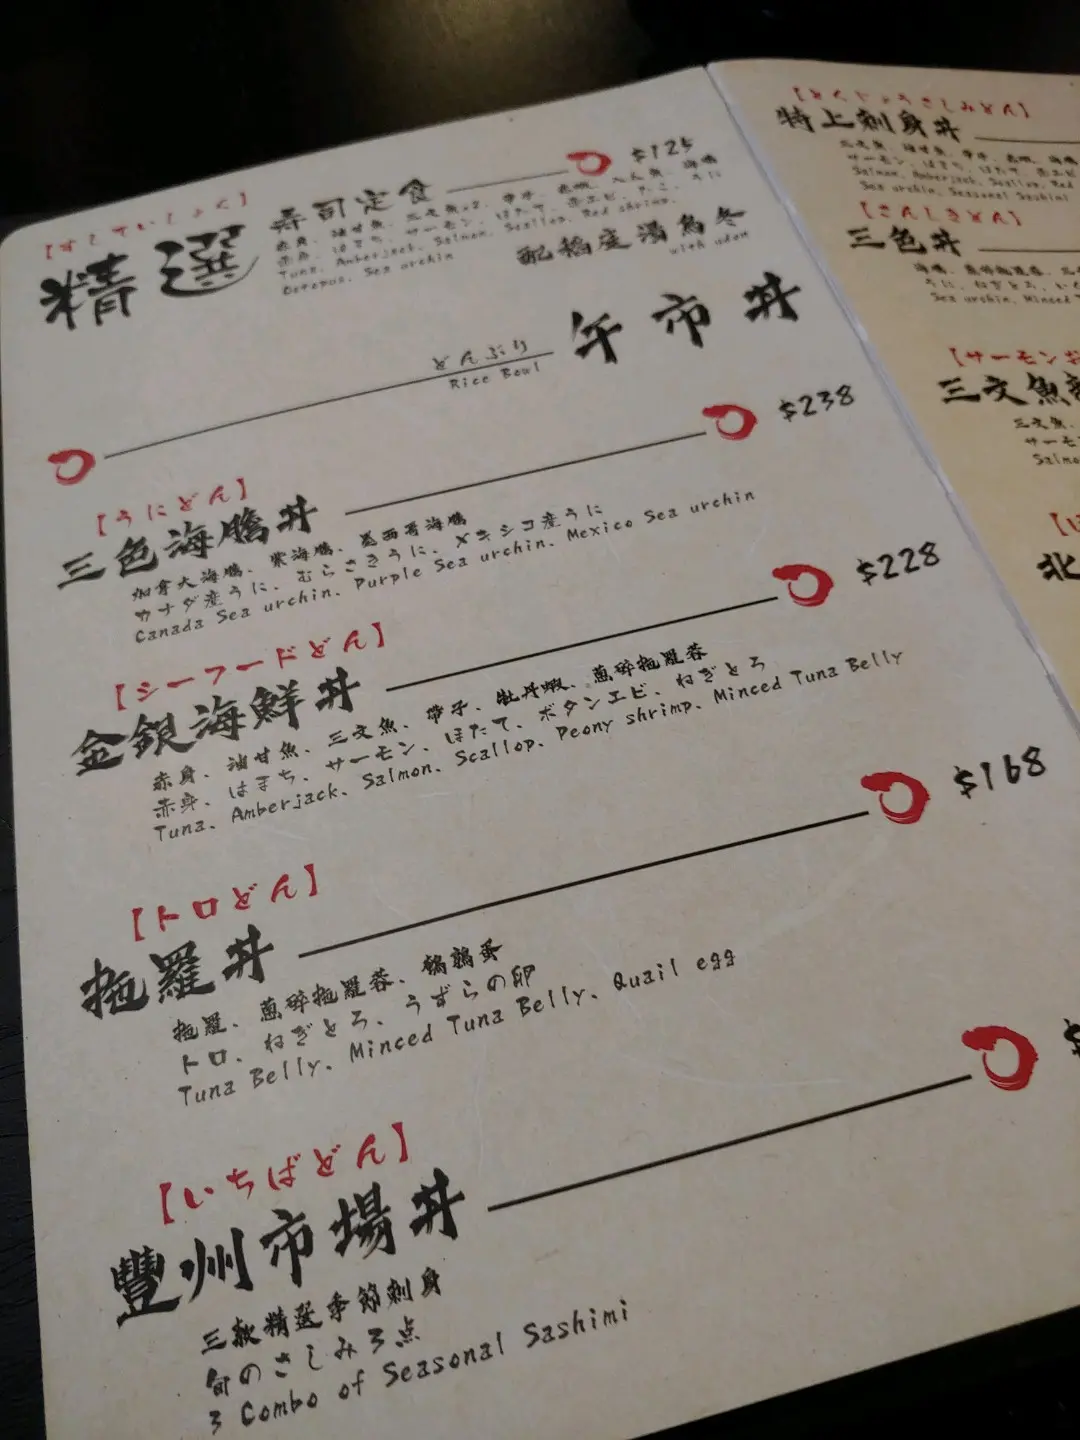 【すしていしょく】
精選
寿司定食
$125
赤身、油甘魚、三文魚x2、帶子、赤蝦、八爪魚、海膽
赤身、はまち、サーモン、ほたて、赤エビ、たこ、うに
Tuna、Amberjack、Salmon、Scallop、Red shrimp、
Octopus、Sea urchin
配稻庭湯烏冬
with udon
どんぶり
Rice Bowl
午市丼
【うにどん】
三色海膽丼
$238
加拿大海膽、紫海膽、墨西哥海膽
カナダ産うに、むらさきうに、メキシコ産うに
Canada Sea urchin、Purple Sea urchin、Mexico Sea urchin
【シーフードどん】
金銀海鮮丼
$228
赤身、油甘魚、三文魚、帶子、牡丹蝦、蔥碎拖羅蓉
赤身、はまち、サーモン、ほたて、ボタンエビ、ねぎとろ
Tuna、Amberjack、Salmon、Scallop、Peony shrimp、Minced Tuna Belly
【トロどん】
拖羅丼
$168
拖羅、蔥碎拖羅蓉、鵪鶉蛋
トロ、ねぎとろ、うずらの卵
Tuna Belly、Minced Tuna Belly、Quail egg
【いちばどん】
豐州市場丼
$
三款精選季節刺身
旬のさしみ3点
3 Combo of Seasonal Sashimi
特上刺身丼
Salmon、Amberjack、Scallop、Red
Sea urchin、Seasonal Sashimi
【さんしきどん】
三色丼
Sea urchin、Minced
【サーモン
三文魚
三文魚、
サーモ
Salmo
北